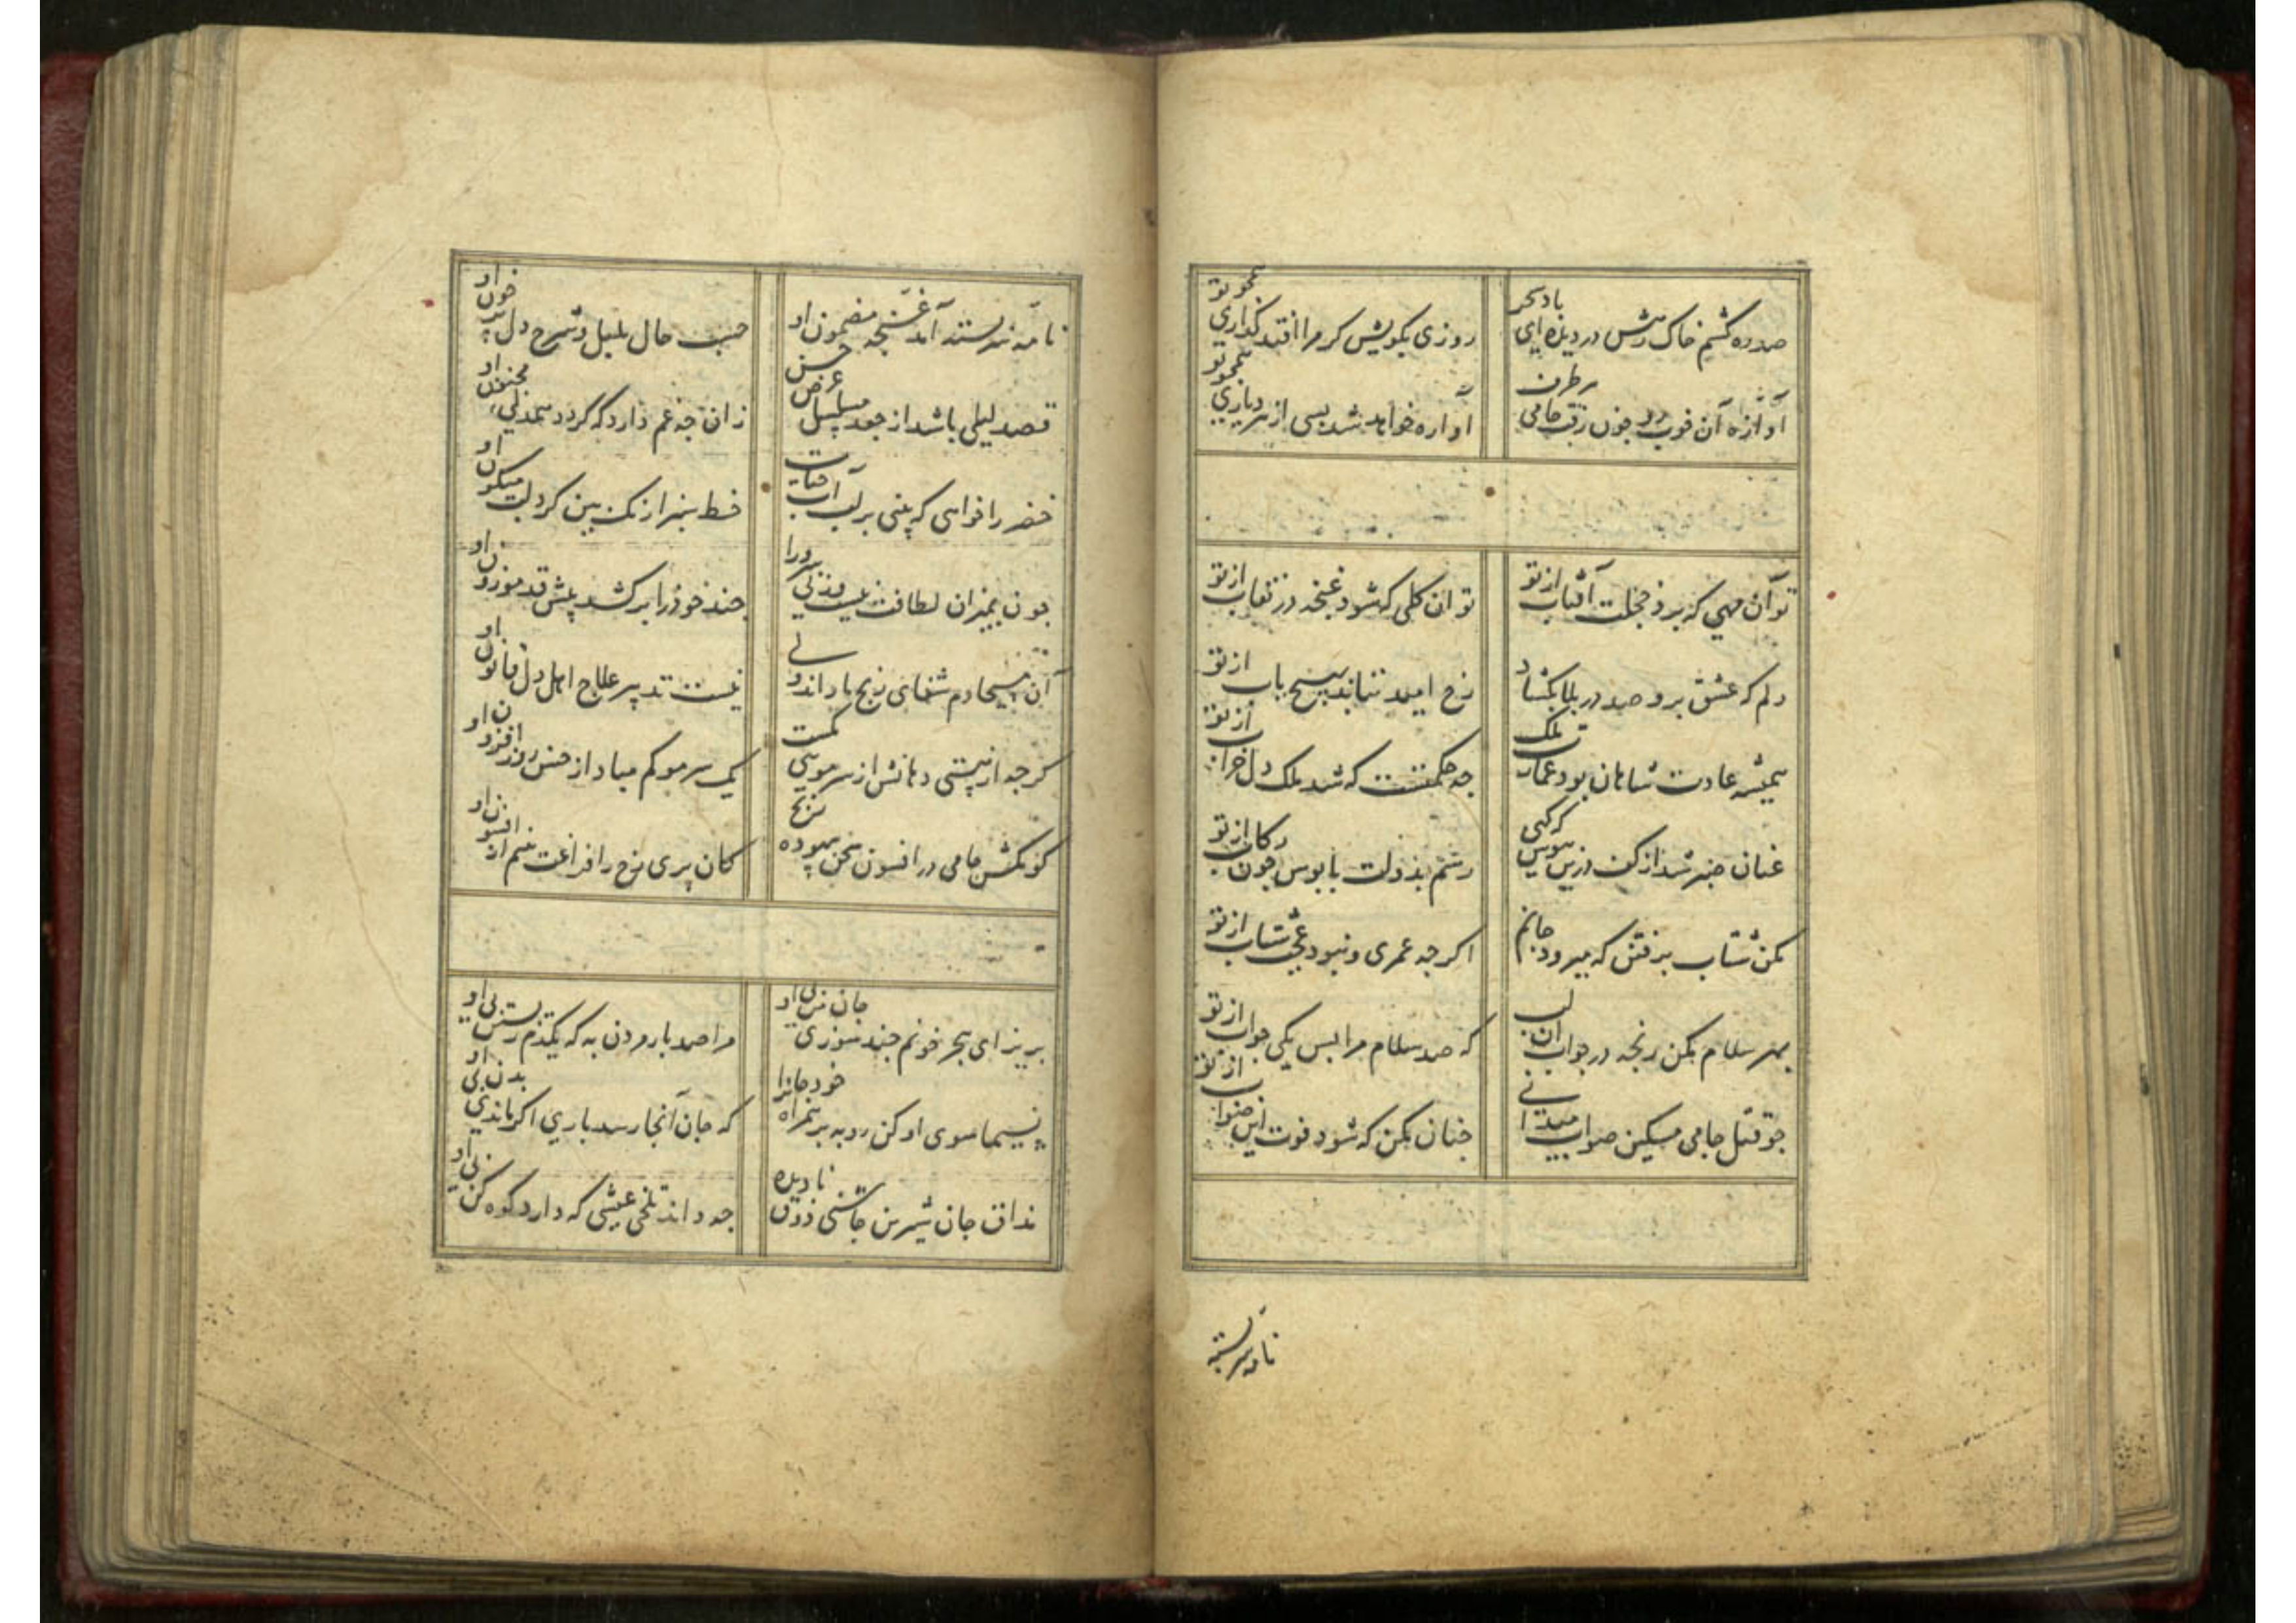 صد ره کشم خاک رهش در دیده ای باد سحر
روزی بکویش کر مرا افتد گذاری همچو تو
آوازه آن خوب رو چون رفت جامی هر طرف
آواره خواهد شد بسی از هر دیاری همچو تو
تو آن مهی که برد خجلت آفتاب از تو
تو ان کلی که شود غنچه در نقاب از تو
دلم که عشق برو صد در بلا بکشاد
رخ امید نتابد بهیچ باب از تو
همیشه عادت شاهان بود عمارت ملک
چه حکمتست که شد ملک دل خراب از تو
عنان صبر شد از کف درین هوس که کهی
رسم بدولت پابوس چون رکاب از تو
مکن شتاب برفتن که میرود جانم
اکرچه عمری و نبود عجب شتاب از تو
بهر سلام مکن رنجه در جواب ان لب
که صد سلام مرا بس یکی جواب از تو
چو قتل جامی مسکین صواب میدانی
چنان مکن که شود فوت این صواب از تو
نامه سربسته
نامه سربسته آمد غنچه مضمون او
حسب حال بلبل و شرح دل پر خون او
قصد لیلی باشد از جعد مسلسل عرض حسن
زان چه غم دارد که کردد بیدلی مجنون او
خضر را خواهی که بینی بر لب آب حیات
خط سبز از یک ببین کرد لب میکون او
چون بمیزان لطافت نیست وزنی سرو را
چند خود را برکشد پیش قد موزون او
آن مسیحا دم شفای رنج ما داند ولی
نیست تدبیر علاج اهل دل قانون او
کرچه از نیستی دهانش از سر مویی کمست
یک سر مو کم مباد از حسن روز افزون او
کو مکش جامی در افسون سخن بیهوده رنج
کان پری رخ را فراغت بینم از افسون او
بریز ای هجر خونم چند سوزی جان من بی او
مرا صد بار مردن به که یکدم زیستن بی او
نسیما سوی او کن رو به بر همراه خود جانرا
که جان آنجا رسد باری اکر ماند بدن بی او
مذاق جان شیرین چاشنی ذوق نادیده
چه داند تلخی عیشی که دارد کوه کن بی او